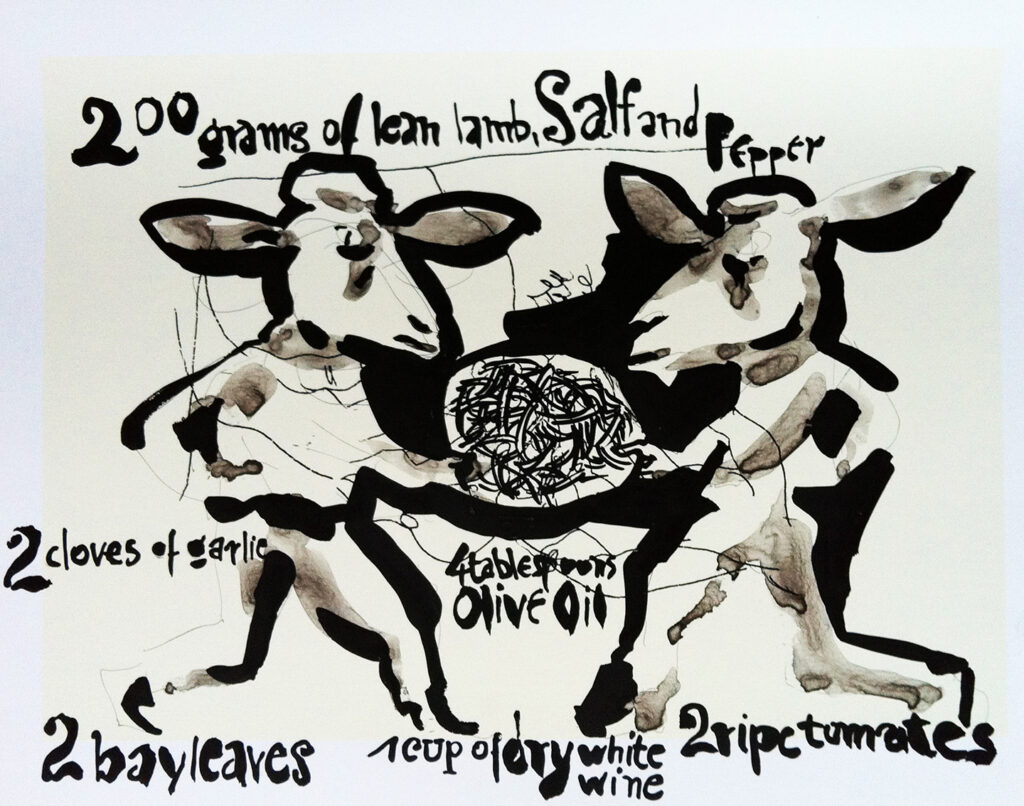 200 grams of lean lamb, Salt and Pepper
2 cloves of garlic
4 tablespoons
Olive Oil
2 bayleaves
1 cup of dry white
wine
2 ripe tumatoes